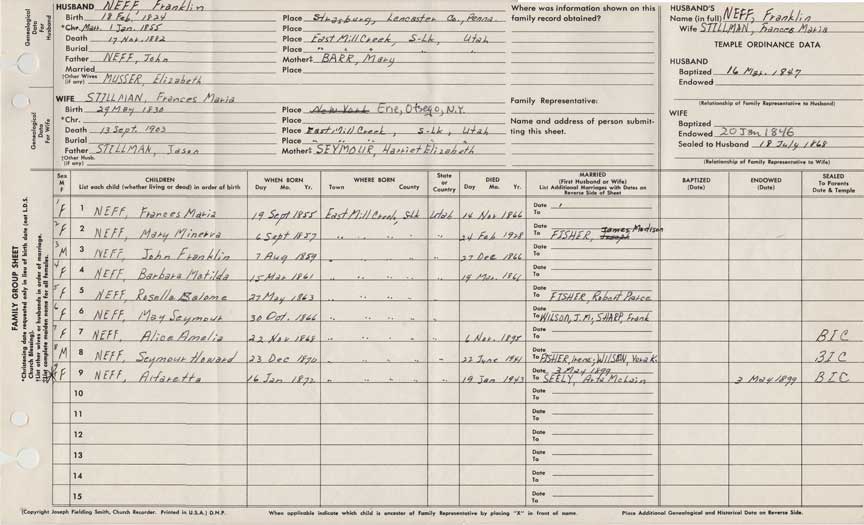 HUSBAND NEFF, Franklin
Birth 18 Feb. 1824 Place Strasburg, Lancaster Co., Penna.
*Chr. Marr. 1 Jan. 1855 Place
Death 17 Nov. 1882 Place East Mill Creek, S-Lk, Utah
Burial Place " " " "
Father NEFF, John Mother BARR, Mary
Married Place
(Other Wives if any) MUSSER, Elizabeth
WIFE STILLMAN, Frances Maria
Birth 29 May 1830 Place New York Erie, Otsego, N.Y.
*Chr. Place
Death 13 Sept. 1903 Place East Mill Creek, S-Lk, Utah
Burial Place
Father STILLMAN, Jason Mother SEYMOUR, Harriet Elizabeth
(Other Husb. if any)
Genealogical Data For Husband
Genealogical Data For Wife
Where was information shown on this family record obtained?
Family Representative:
Name and address of person submitting this sheet.
HUSBAND'S Name (in full) NEFF, Franklin
Wife STILLMAN, Frances Maria
TEMPLE ORDINANCE DATA
HUSBAND
Baptized 16 Mar. 1847
Endowed
(Relationship of Family Representative to Husband)
WIFE
Baptized
Endowed 20 Jan 1846
Sealed to Husband 18 July 1868
(Relationship of Family Representative to Wife)
Sex M F
CHILDREN List each child (whether living or dead) in order of birth
WHEN BORN Day Mo. Yr.
WHERE BORN Town County
State or Country
DIED Day Mo. Yr.
MARRIED (First Husband or Wife) List Additional Marriages with Dates on Reverse Side of Sheet
BAPTIZED (Date)
ENDOWED (Date)
SEALED To Parents Date & Temple
1 F 1 NEFF, Frances Maria 19 Sept 1855 East Mill Creek, S-Lk Utah 14 Nov 1866 Date To
2 F 2 NEFF, Mary Minerva 6 Sept 1857 " " " " 24 Feb 1928 Date To FISHER, James Madison Joseph
3 M 3 NEFF, John Franklin 7 Aug 1859 " " " " 27 Dec 1866 Date To
4 F 4 NEFF, Barbara Matilda 15 Mar 1861 " " " " 19 Mar. 1861 Date To
5 F 5 NEFF, Rosella Salome 27 May 1863 " " " " Date To FISHER, Robert Pierce
6 F 6 NEFF, May Seymour 30 Oct. 1866 " " " " Date To WILSON, J.M; SHARP, Frank
7 F 7 NEFF, Alice Amelia 22 Nov 1868 " " " " 6 Nov. 1895 Date To BIC
8 M 8 NEFF, Seymour Howard 23 Dec 1870 " " " " 22 June 1941 Date To FISHER, Irene; WILSON, Vera K. BIC
X F 9 NEFF, Alfaretta 16 Jan 1872 " " " " 19 Jan 1943 Date 3 May 1899 To SEELY, Arta McLain 3 May 1899 BIC
10 Date To
11 Date To
12 Date To
13 Date To
14 Date To
15 Date To
FAMILY GROUP SHEET
*Christening date requested only in lieu of birth date (not L.D.S. Church Blessing).
†List other wives or husbands in order of marriage.
‡List complete maiden name for all females.
(Copyright Joseph Fielding Smith, Church Recorder. Printed in U.S.A.) D.N.P. When applicable indicate which child is ancestor of Family Representative by placing "X" in front of name. Place Additional Genealogical and Historical Data on Reverse Side.